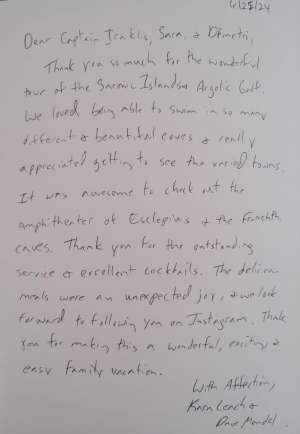 6/25/24
Dear Captain Iraklis, Sara, & Dimetri,
Thank you so much for the wonderful
tour of the Saronic Islands & Argolic Gulf.
We loved being able to swim in so many
different & beautiful coves & really
appreciated getting to see the varied towns.
It was awesome to check out the
amphitheater of Esclepius & the Franchthi
caves. Thank you for the outstanding
service & excellent cocktails. The delicious
meals were an unexpected joy, & we look
forward to following you on Instagram. Thank
you for making this a wonderful, exciting, &
easy family vacation.
With Affection,
Kara Leach &
Dave Mandel